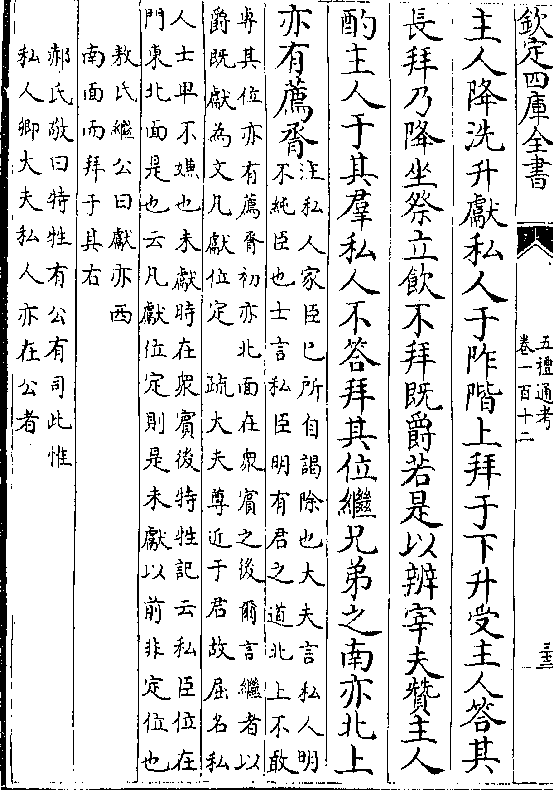 欽定四庫全書
五禮通考
卷一百十二
三十三
主人降洗升獻私人于阼階上拜于下升受主人答其
長拜乃降坐祭立飲不拜既爵若是以辨宰夫贊主人
酌主人于其羣私人不答拜其位繼兄弟之南亦北上
亦有薦脀
注私人家臣已所自謁除也大夫言私人明
不純臣也士言私臣明有君之道北上不敢
專其位亦有薦脀初亦北面在衆賓之後爾言繼者以
爵既獻為文凡獻位定 疏大夫尊近于君故屈名私
人士卑不嫌也未獻時在衆賓後特牲記云私臣位在
門東北面是也云凡獻位定則是未獻以前非定位也
敖氏繼公曰獻亦西
南面而拜于其右
郝氏敬曰特牲有公有司此惟
私人卿大夫私人亦在公者